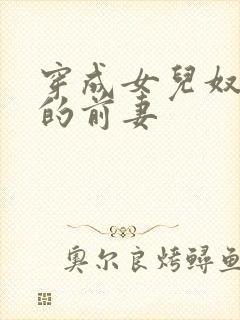 穿成女兒奴
的前妻
奥尔良烤鲟鱼